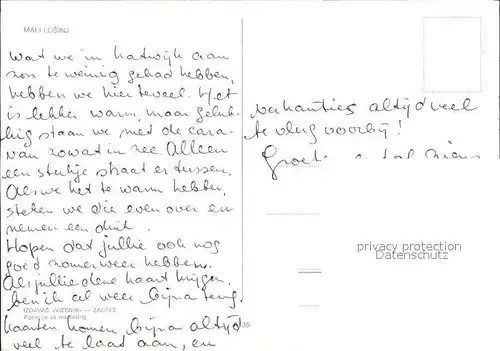 MALI LOŠINJ
Wat we in Katwijk aan
zon te weinig gehad hebben,
hebben we hier teveel. Het
is lekker warm, maar geluk-
kig staan we met de cara-
van zowat in zee. Alleen
een stukje straat er tussen.
Als we het te warm hebben,
steken we die even over en
nemen een duik.
Hopen dat jullie ook nog
goed zomerweer hebben.
Als jullie deze kaart krijgen,
ben ik al weer bijna terug.
IZDAVAČ »VJESNIK« — ZAGREB
Agencija za marketing
kaarten komen bijna altijd
veel te laat aan, en
35
vakanties altijd veel
te vlug voorbij!
Groetjes tot ziens
privacy protection
Datenschutz